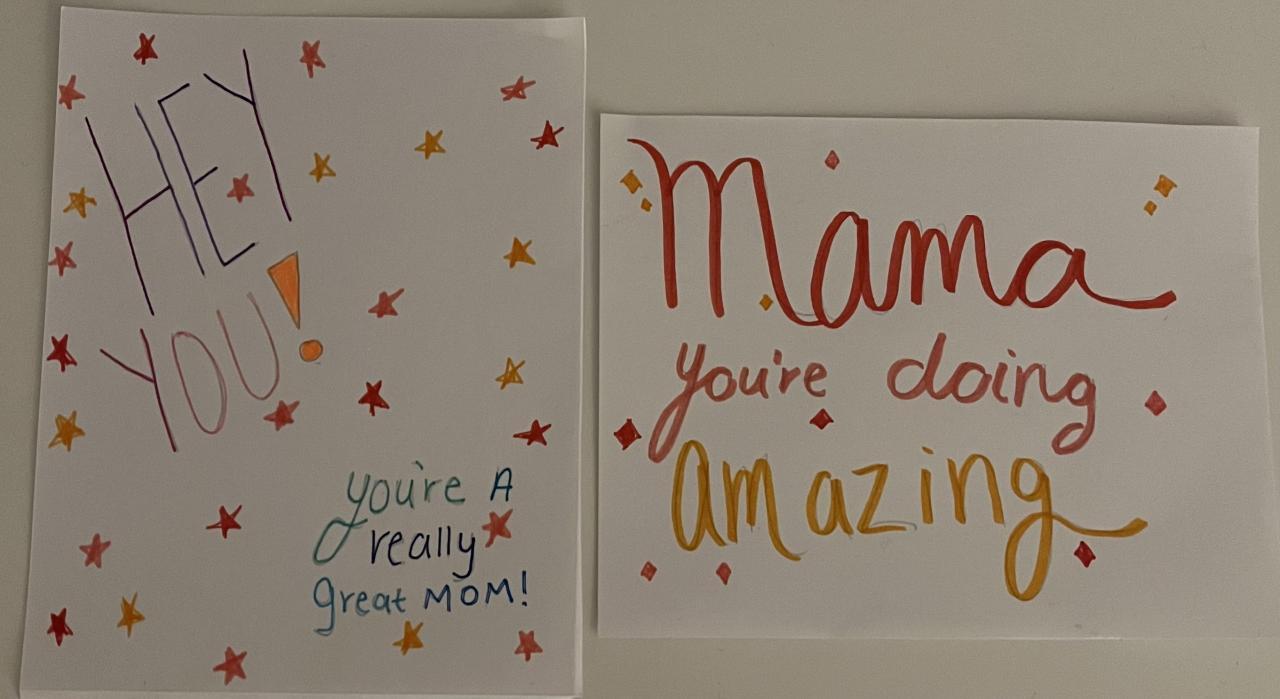 HEY
YOU!
you're A
really
great MOM!
Mama
you're doing
amazing